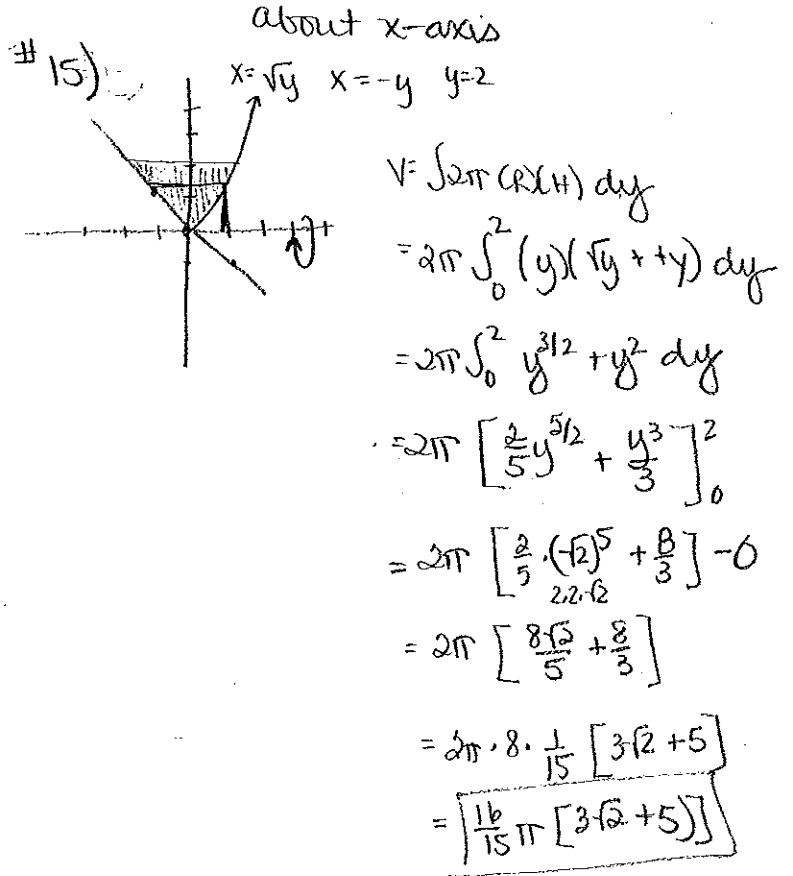 about x-axis
#15)
x=√y x=-y y=2
V= ∫2π (R)(H) dy
=2π ∫₀² (y)(√y + +y) dy
=2π ∫₀² y^3/2 + y² dy
=2π [2/5 y^5/2 + y³/3]₀²
= 2π [2/5 · (√2)⁵ + 8/3] -0
2·2·√2
= 2π [8√2/5 + 8/3]
= 2π · 8 · 1/15 [3√2 +5]
= 16/15 π [3√2 + 5)]